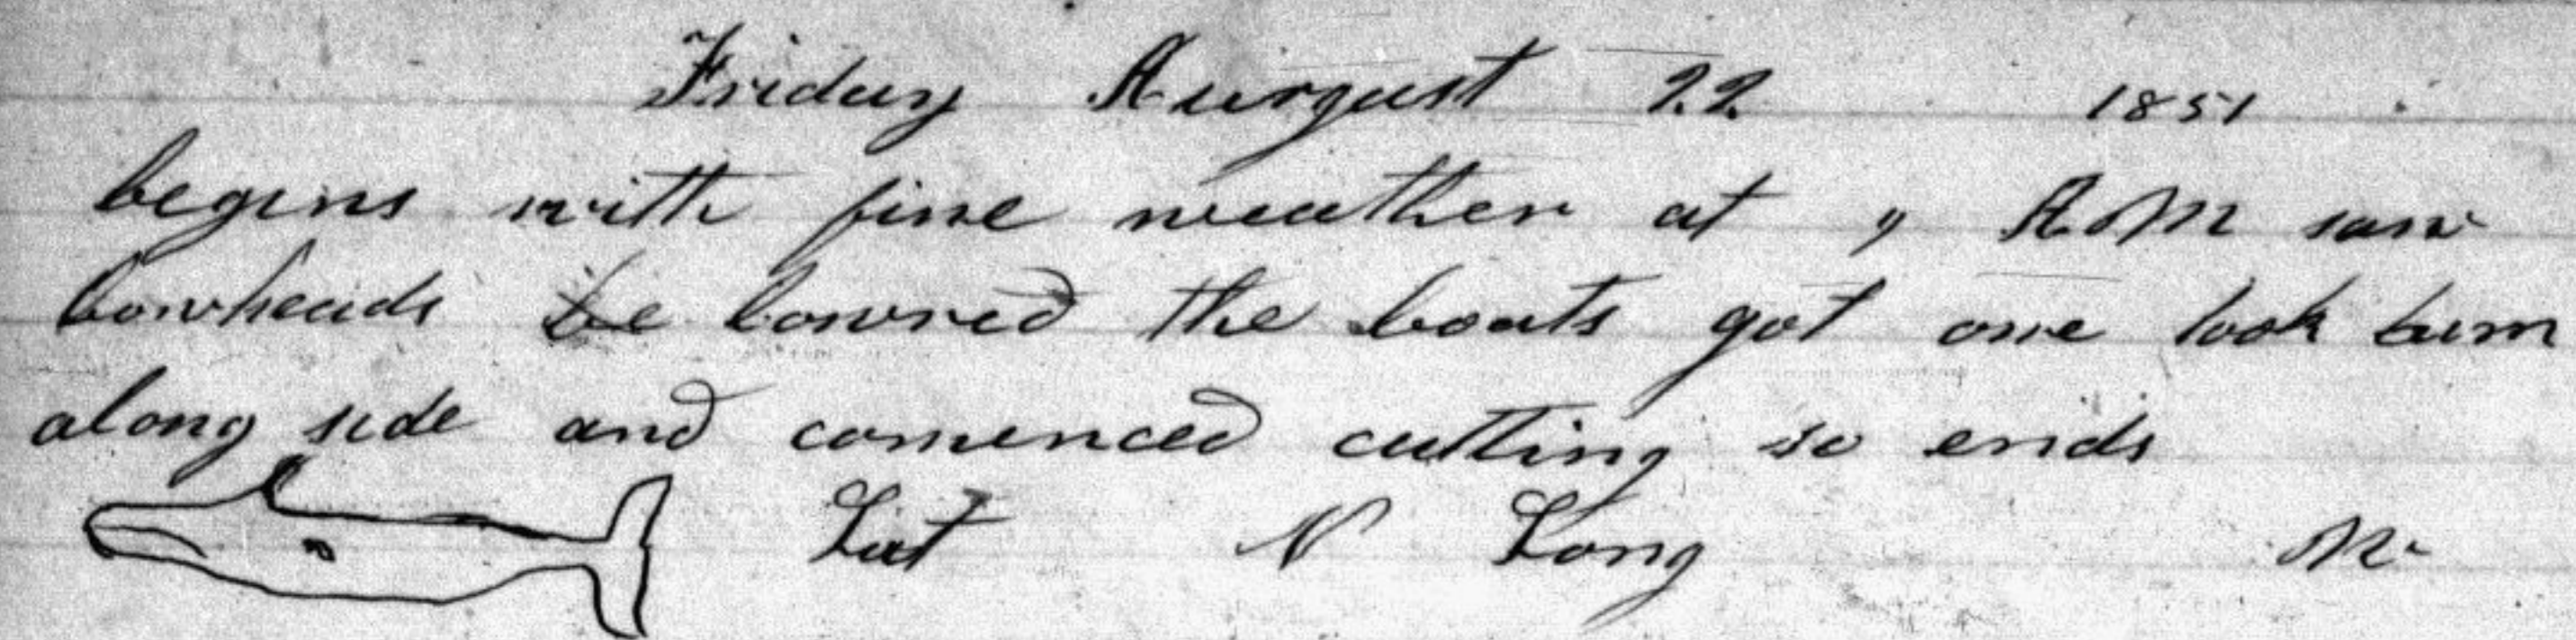 Friday August 22 1851
begins with fine weather at 9 AM saw
bowheads lowred the boats got one took him
along side and comenced cutting so ends
Lat N Long W